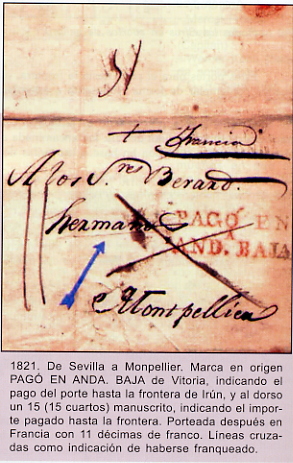 + Francia
A los S.res Berard
hermanos
PAGÓ EN
AND. BAJA
Montpellier
11
1821. De Sevilla a Monpellier. Marca en origen
PAGÓ EN ANDA. BAJA de Vitoria, indicando el
pago del porte hasta la frontera de Irún, y al dorso
un 15 (15 cuartos) manuscrito, indicando el impor-
te pagado hasta la frontera. Porteada después en
Francia con 11 décimas de franco. Líneas cruza-
das como indicación de haberse franqueado.